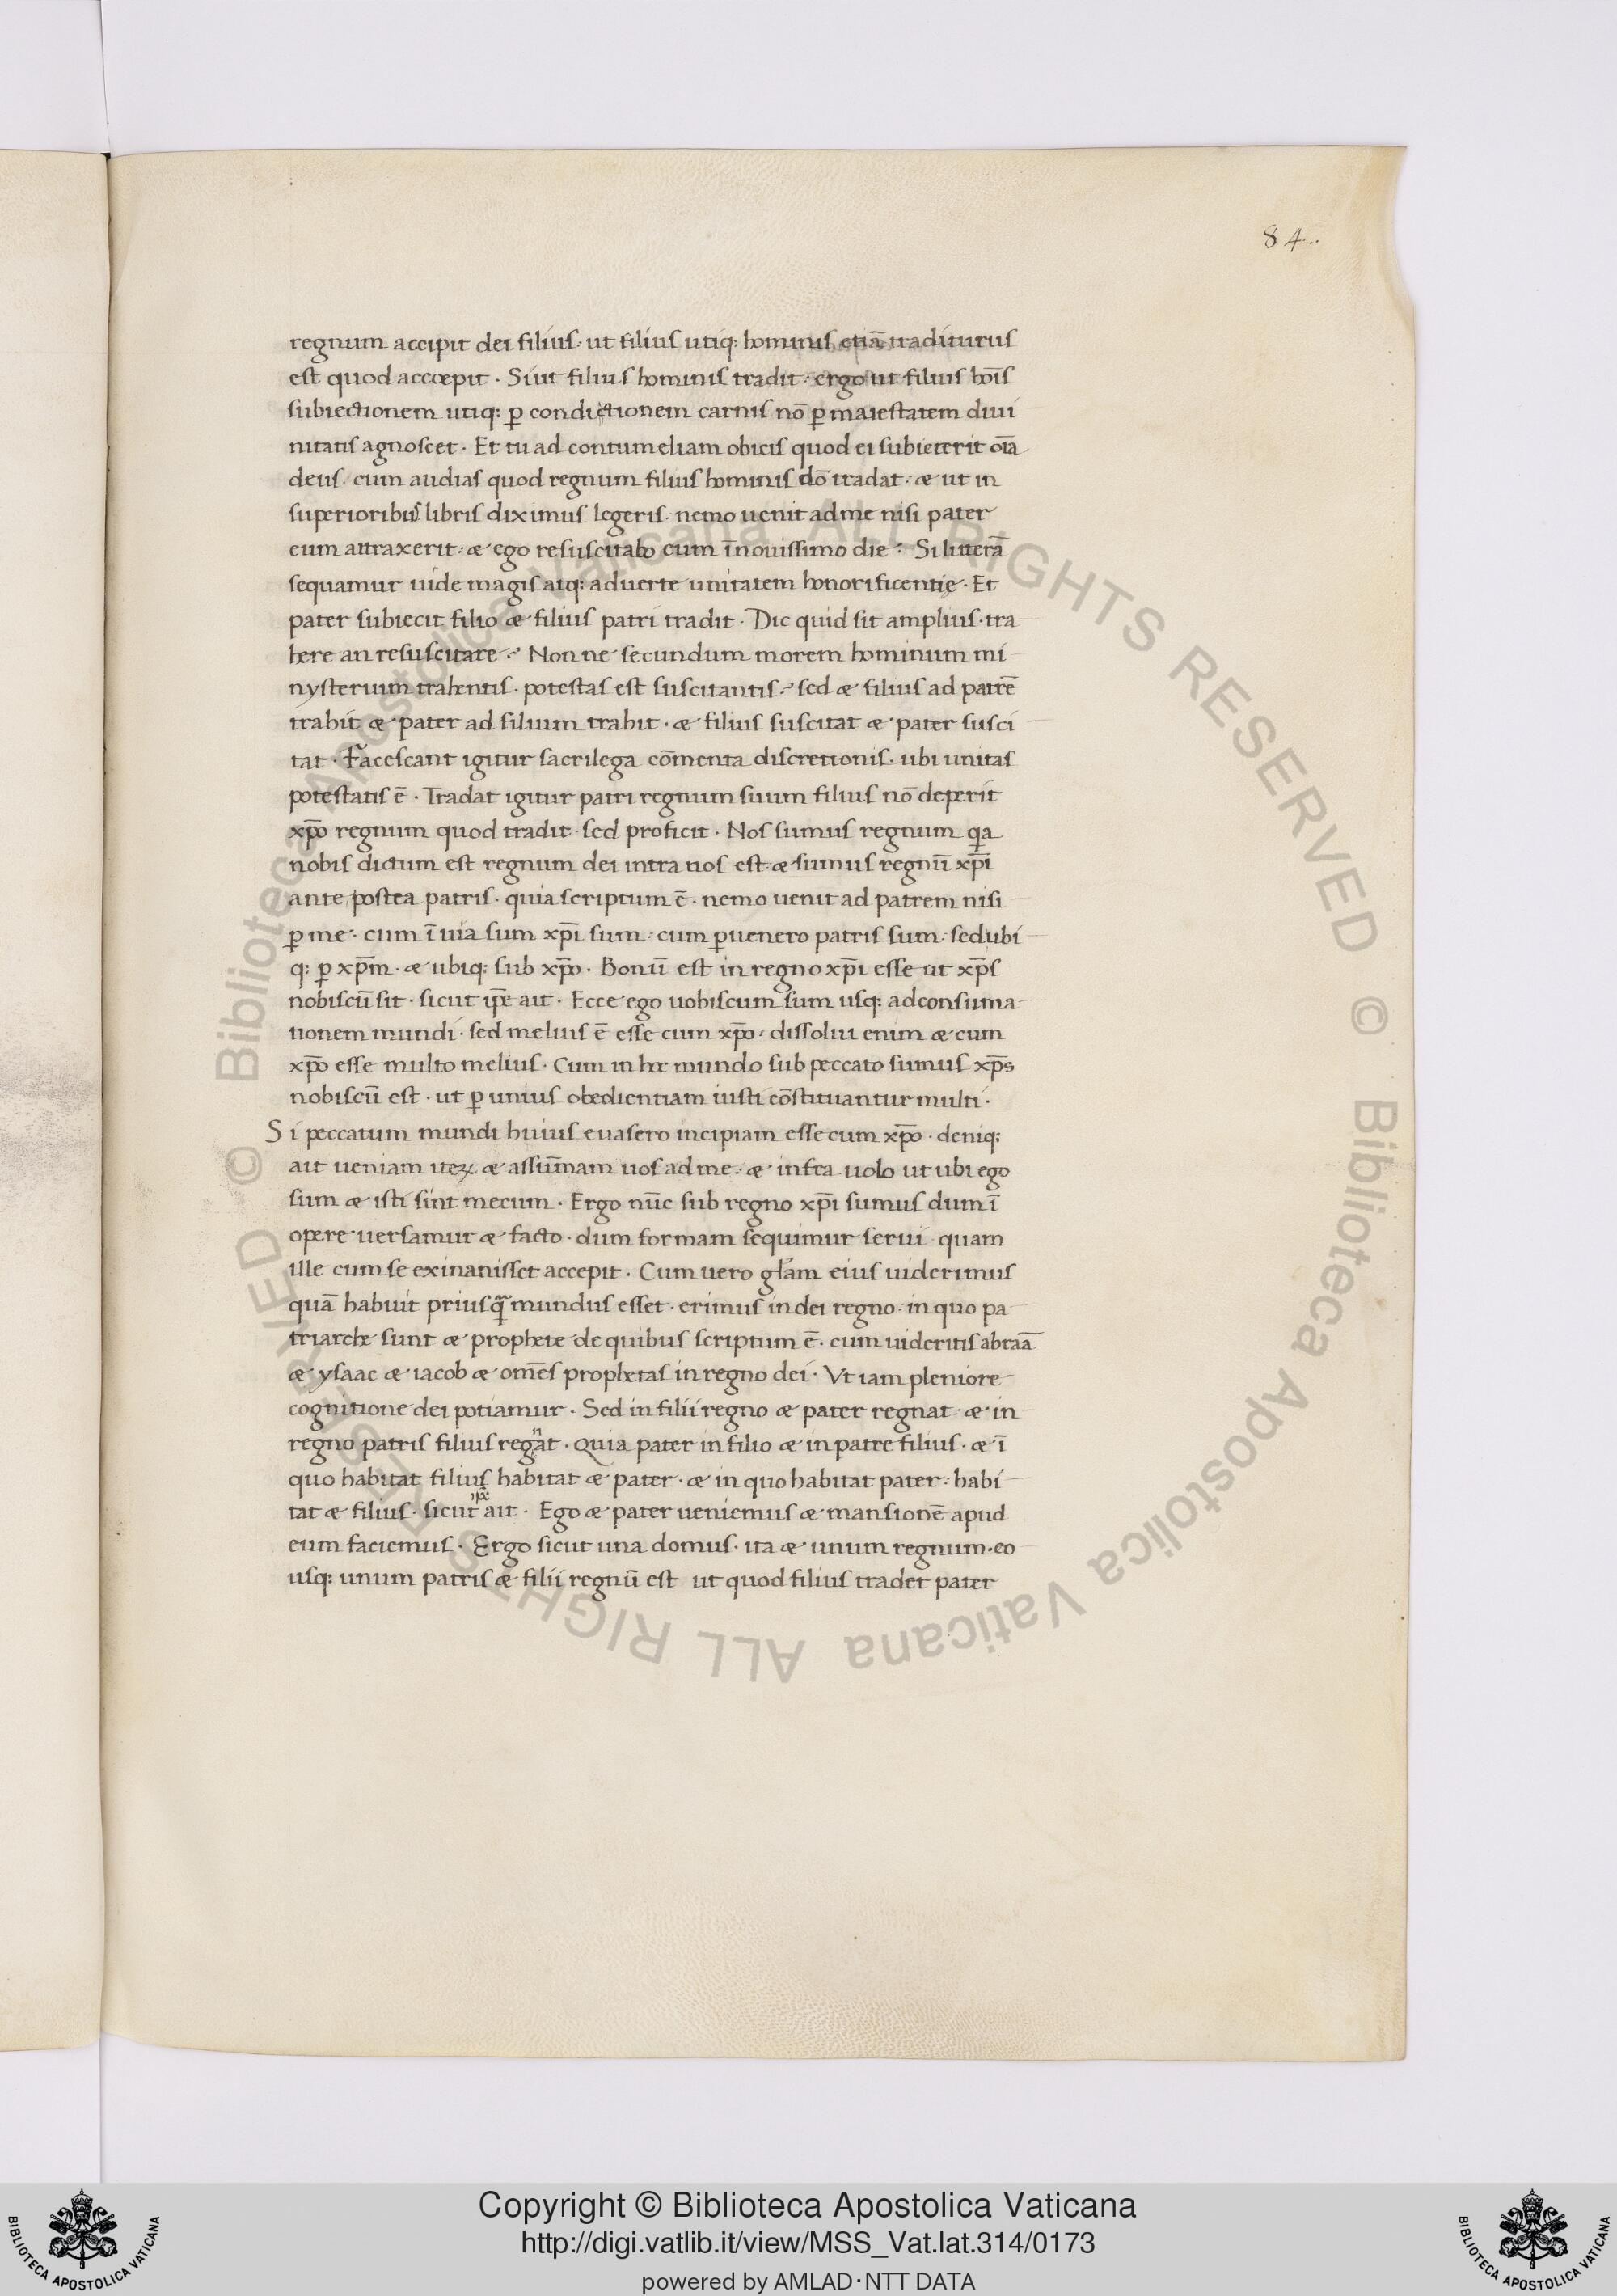 84.
regnum accipit dei filius· ut filius utiq: hominis etiā traditurus
est quod accœpit · Siut filius hominis tradit · ergo ut filius hoīs
subiectionem utiq: ꝑ condictionem carnis nō ꝑ maiestatem diui
nitatis agnoscet · Et tu ad contumeliam obicis quod ei subiecerit oīa
deus· cum audias quod regnum filius hominis dō tradat · æ ut in
superioribus libris diximus legeris · nemo uenit ad me nisi pater
eum attraxerit · æ ego resuscitabo eum ī nouissimo die · Si litterā
sequamur uide magis atq: aduerte unitatem honorificentię · Et
pater subiecit filio æ filius patri tradit · Dic quid sit amplius · tra
here an resuscitare · Non ne secundum morem hominum mi
nysterium trahentis · potestas est suscitantis · sed æ filius ad patrē
trahit æ pater ad filium trahit · æ filius suscitat æ pater susci
tat · Facescant igitur sacrilega cōmenta discretionis · ubi unitas
potestatis ē · Tradat igitur patri regnum suum filius nō deperit
xp̄o regnum quod tradit · sed proficit · Nos sumus regnum qa
nobis dictum est regnum dei intra uos est · æ sumus regnū xp̄i
ante postea patris · quia scriptum ē · nemo uenit ad patrem nisi
ꝑ me · cum ī uia sum xp̄i sum · cum ꝑuenero patris sum · sed ubi
q: ꝑ xp̄m · æ ubiq: sub xp̄o · Bonū est in regno xp̄i esse ut xp̄s
nobiscū sit · sicut ip̄e ait · Ecce ego uobiscum sum usq: ad consuma
tionem mundi · sed melius ē esse cum xp̄o · dissolui enim æ cum
xp̄o esse multo melius · Cum in hoc mundo sub peccato sumus xp̄s
nobiscū est · ut ꝑ unius obedientiam iusti cōstituantur multi ·
Si peccatum mundi huius euasero incipiam esse cum xp̄o · deniq:
ait ueniam iteꝝ æ assūmam uos ad me · æ infra uolo ut ubi ego
sum æ isti sint mecum · Ergo nūc sub regno xp̄i sumus dum ī
opere uersamur æ facto · dum formam sequimur serui · quam
ille cum se exinanisset accepit · Cum uero gl̄am eius uiderimus
quā habuit priusq̄ mundus esset · erimus in dei regno · in quo pa
triarche sunt æ prophete de quibus scriptum ē · cum uideritis abraā
æ ysaac æ iacob æ om̄es prophetas in regno dei · Vt iam pleniore
cognitione dei potiamur · Sed in filii regno æ pater regnat · æ in
regno patris filius regnat · Quia pater in filio æ in patre filius · æ ī
quo habitat filius habitat æ pater · æ in quo habitat pater · habi
tat æ filius · sicut ait · Ego æ pater ueniemus æ mansionē apud
eum faciemus · Ergo sicut una domus · ita æ unum regnum · eo
usq: unum patris æ filii regnū est ut quod filius tradet pater
© Biblioteca Apostolica Vaticana ALL RIGHTS RESERVED © Biblioteca Apostolica Vaticana ALL RIGHTS RESERVED
Copyright © Biblioteca Apostolica Vaticana
http://digi.vatlib.it/view/MSS_Vat.lat.314/0173
powered by AMLAD·NTT DATA
BIBLIOTECA APOSTOLICA VATICANA
BIBLIOTECA APOSTOLICA VATICANA